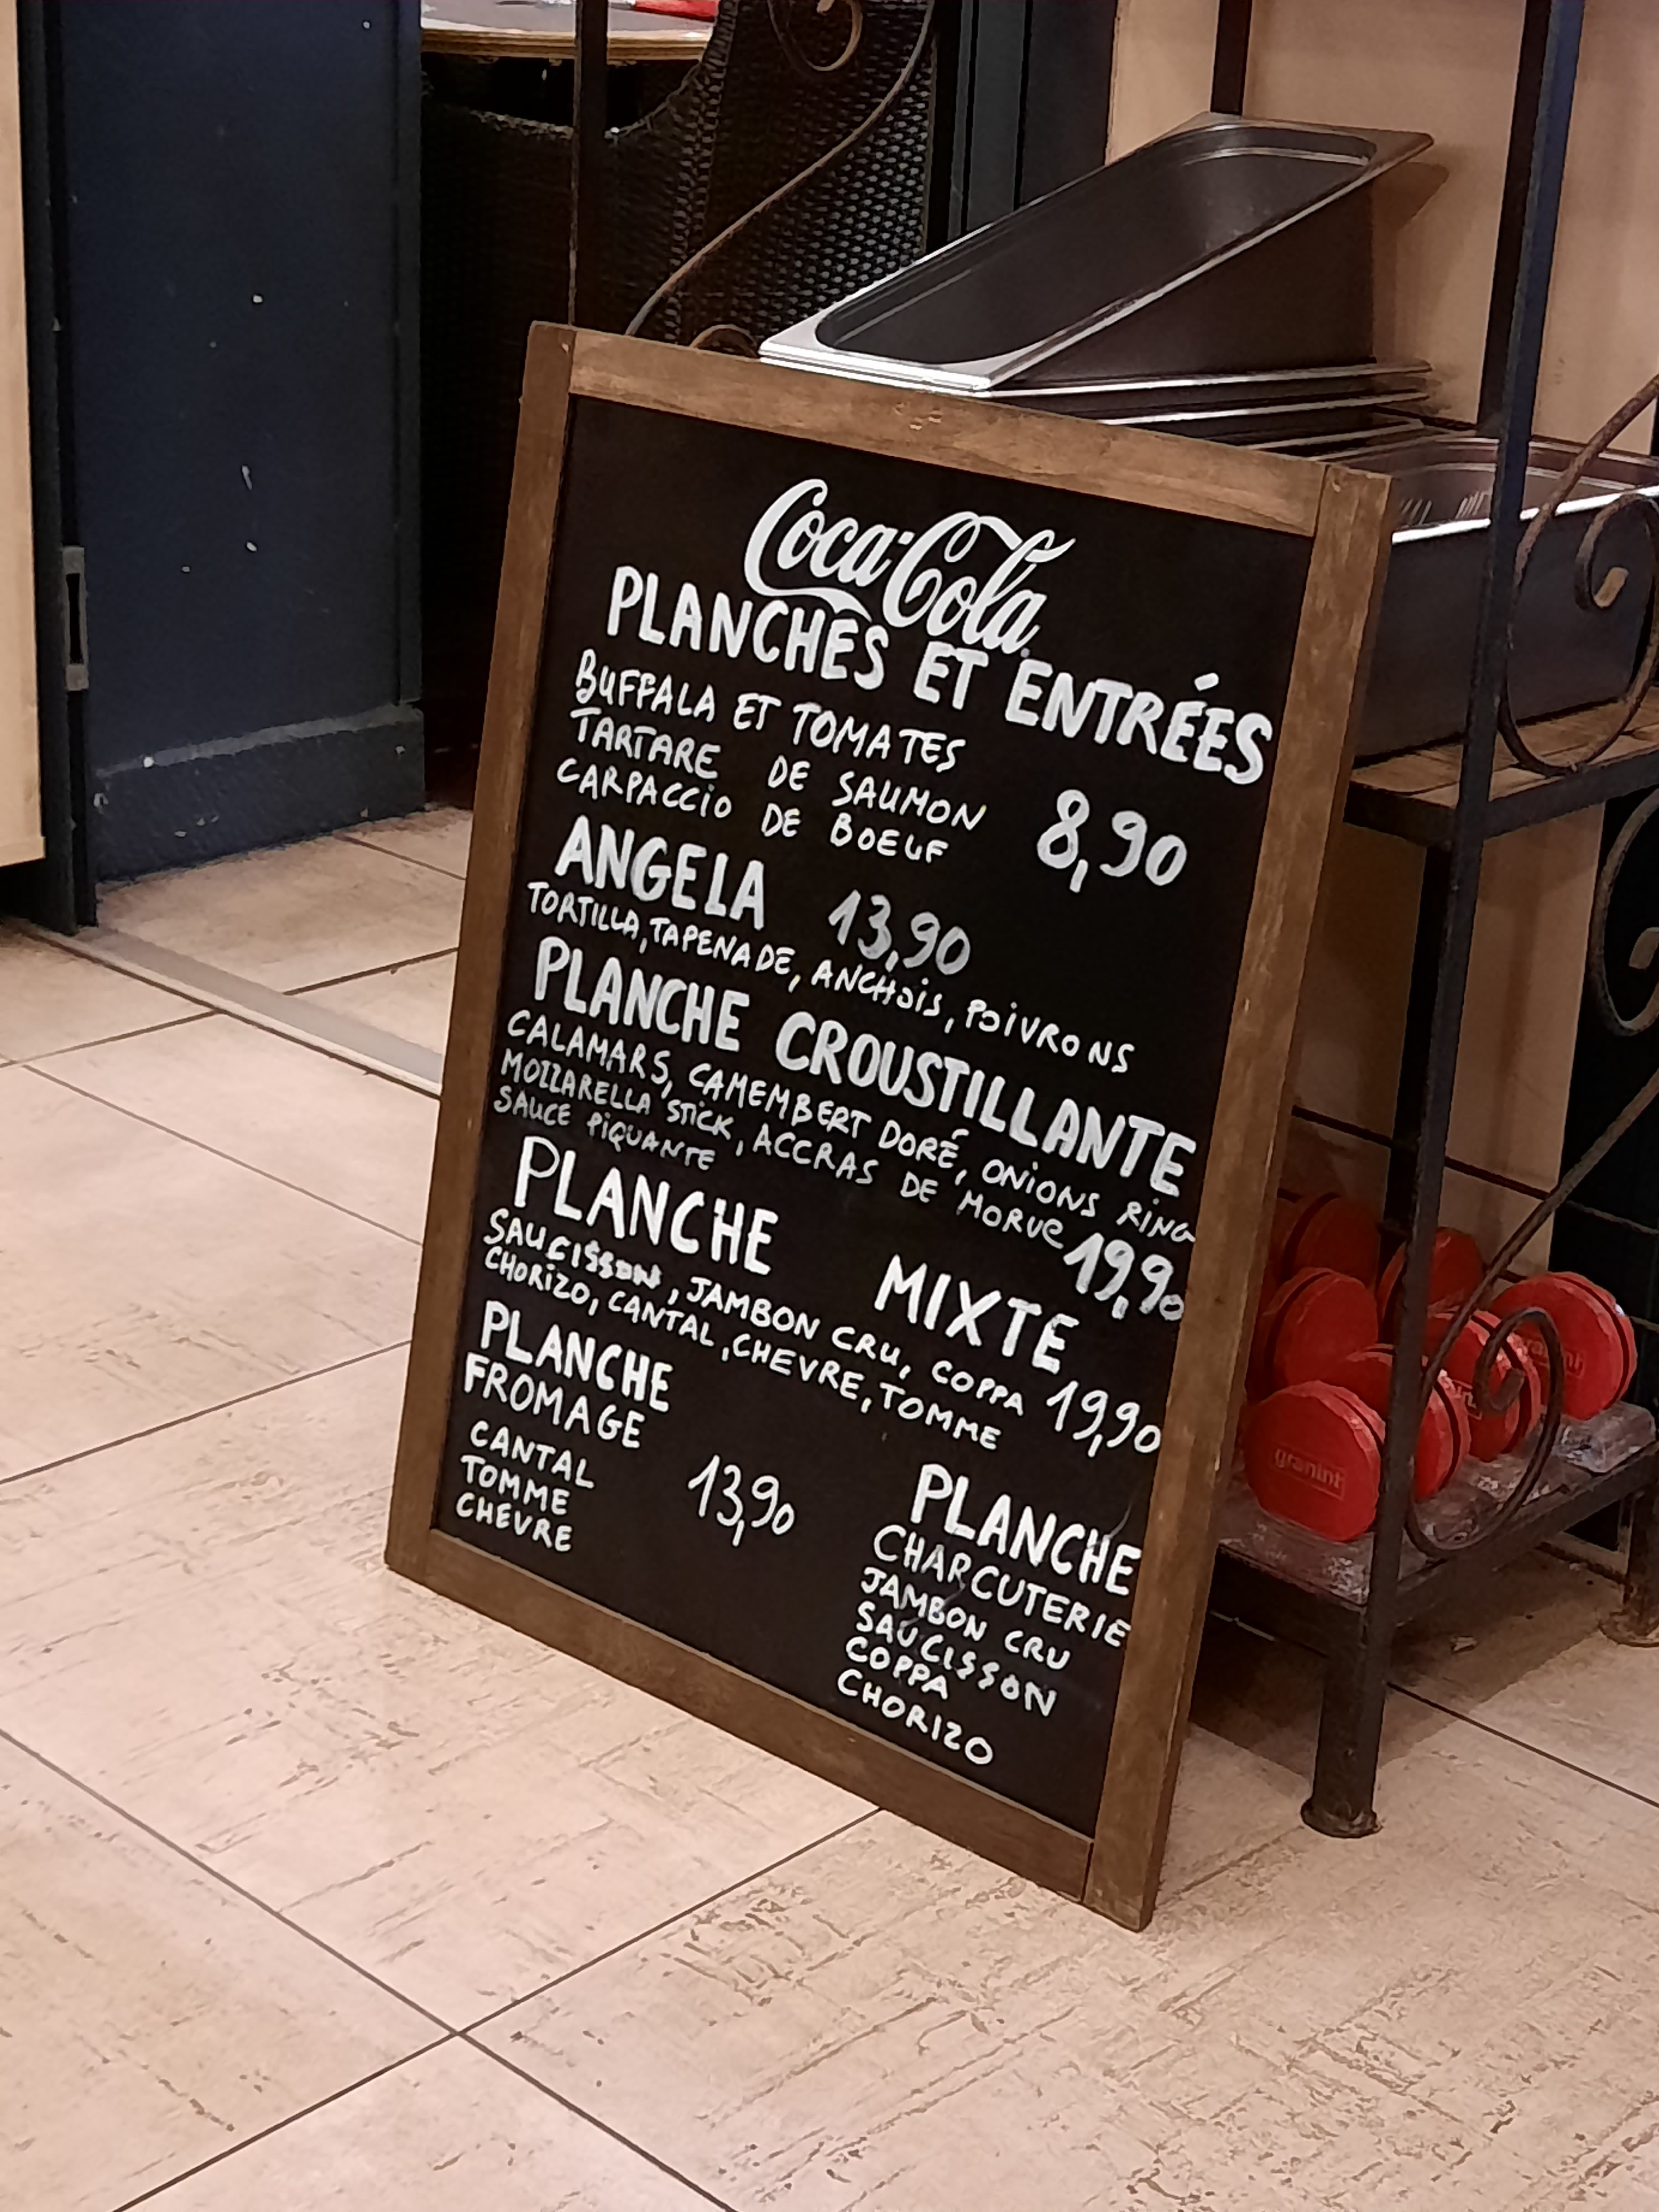 Coca-Cola
PLANCHES ET ENTRÉES
BUFFALA ET TOMATES
TARTARE DE SAUMON
CARPACCIO DE BOEUF
8,90
ANGELA 13,90
TORTILLA, TAPENADE, ANCHOIS, POIVRONS
PLANCHE CROUSTILLANTE
CALAMARS, CAMEMBERT DORÉ, ONIONS RING
MOZZARELLA STICK, ACCRAS DE MORUE
SAUCE PIQUANTE
19,90
PLANCHE MIXTE
SAUCISSON, JAMBON CRU, COPPA
CHORIZO, CANTAL, CHEVRE, TOMME
19,90
PLANCHE
FROMAGE
CANTAL
TOMME
CHEVRE
13,90
PLANCHE
CHARCUTERIE
JAMBON CRU
SAUCISSON
COPPA
CHORIZO
granini